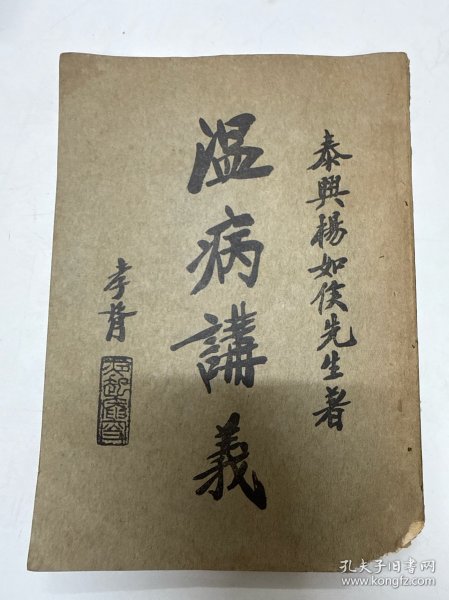 泰興楊如侯先生著
温病講義
孝胥
孔夫子旧书网
www.kongfz.com